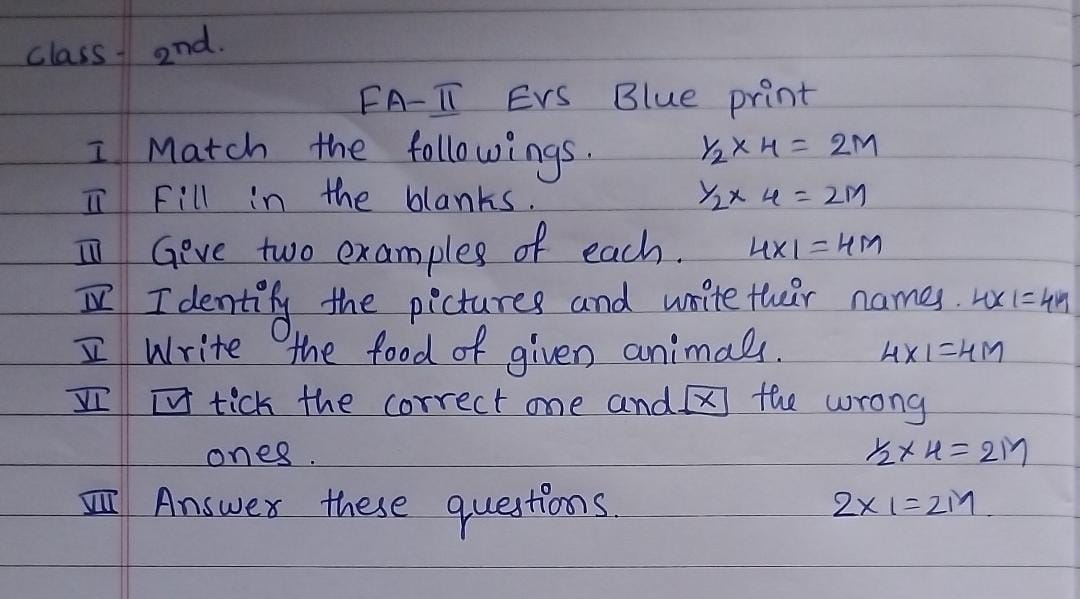 Class - 2nd.
FA-II EVS Blue print
I Match the followings. ½ × 4 = 2M
II Fill in the blanks. ½ × 4 = 2M
III Give two examples of each. 4×1=4M
IV Identify the pictures and write their names. 4×1=4M
V Write the food of given animals. 4×1=4M
VI ☑ tick the correct one and ☒ the wrong
ones. ½ × 4 = 2M
VII Answer these questions. 2×1=2M